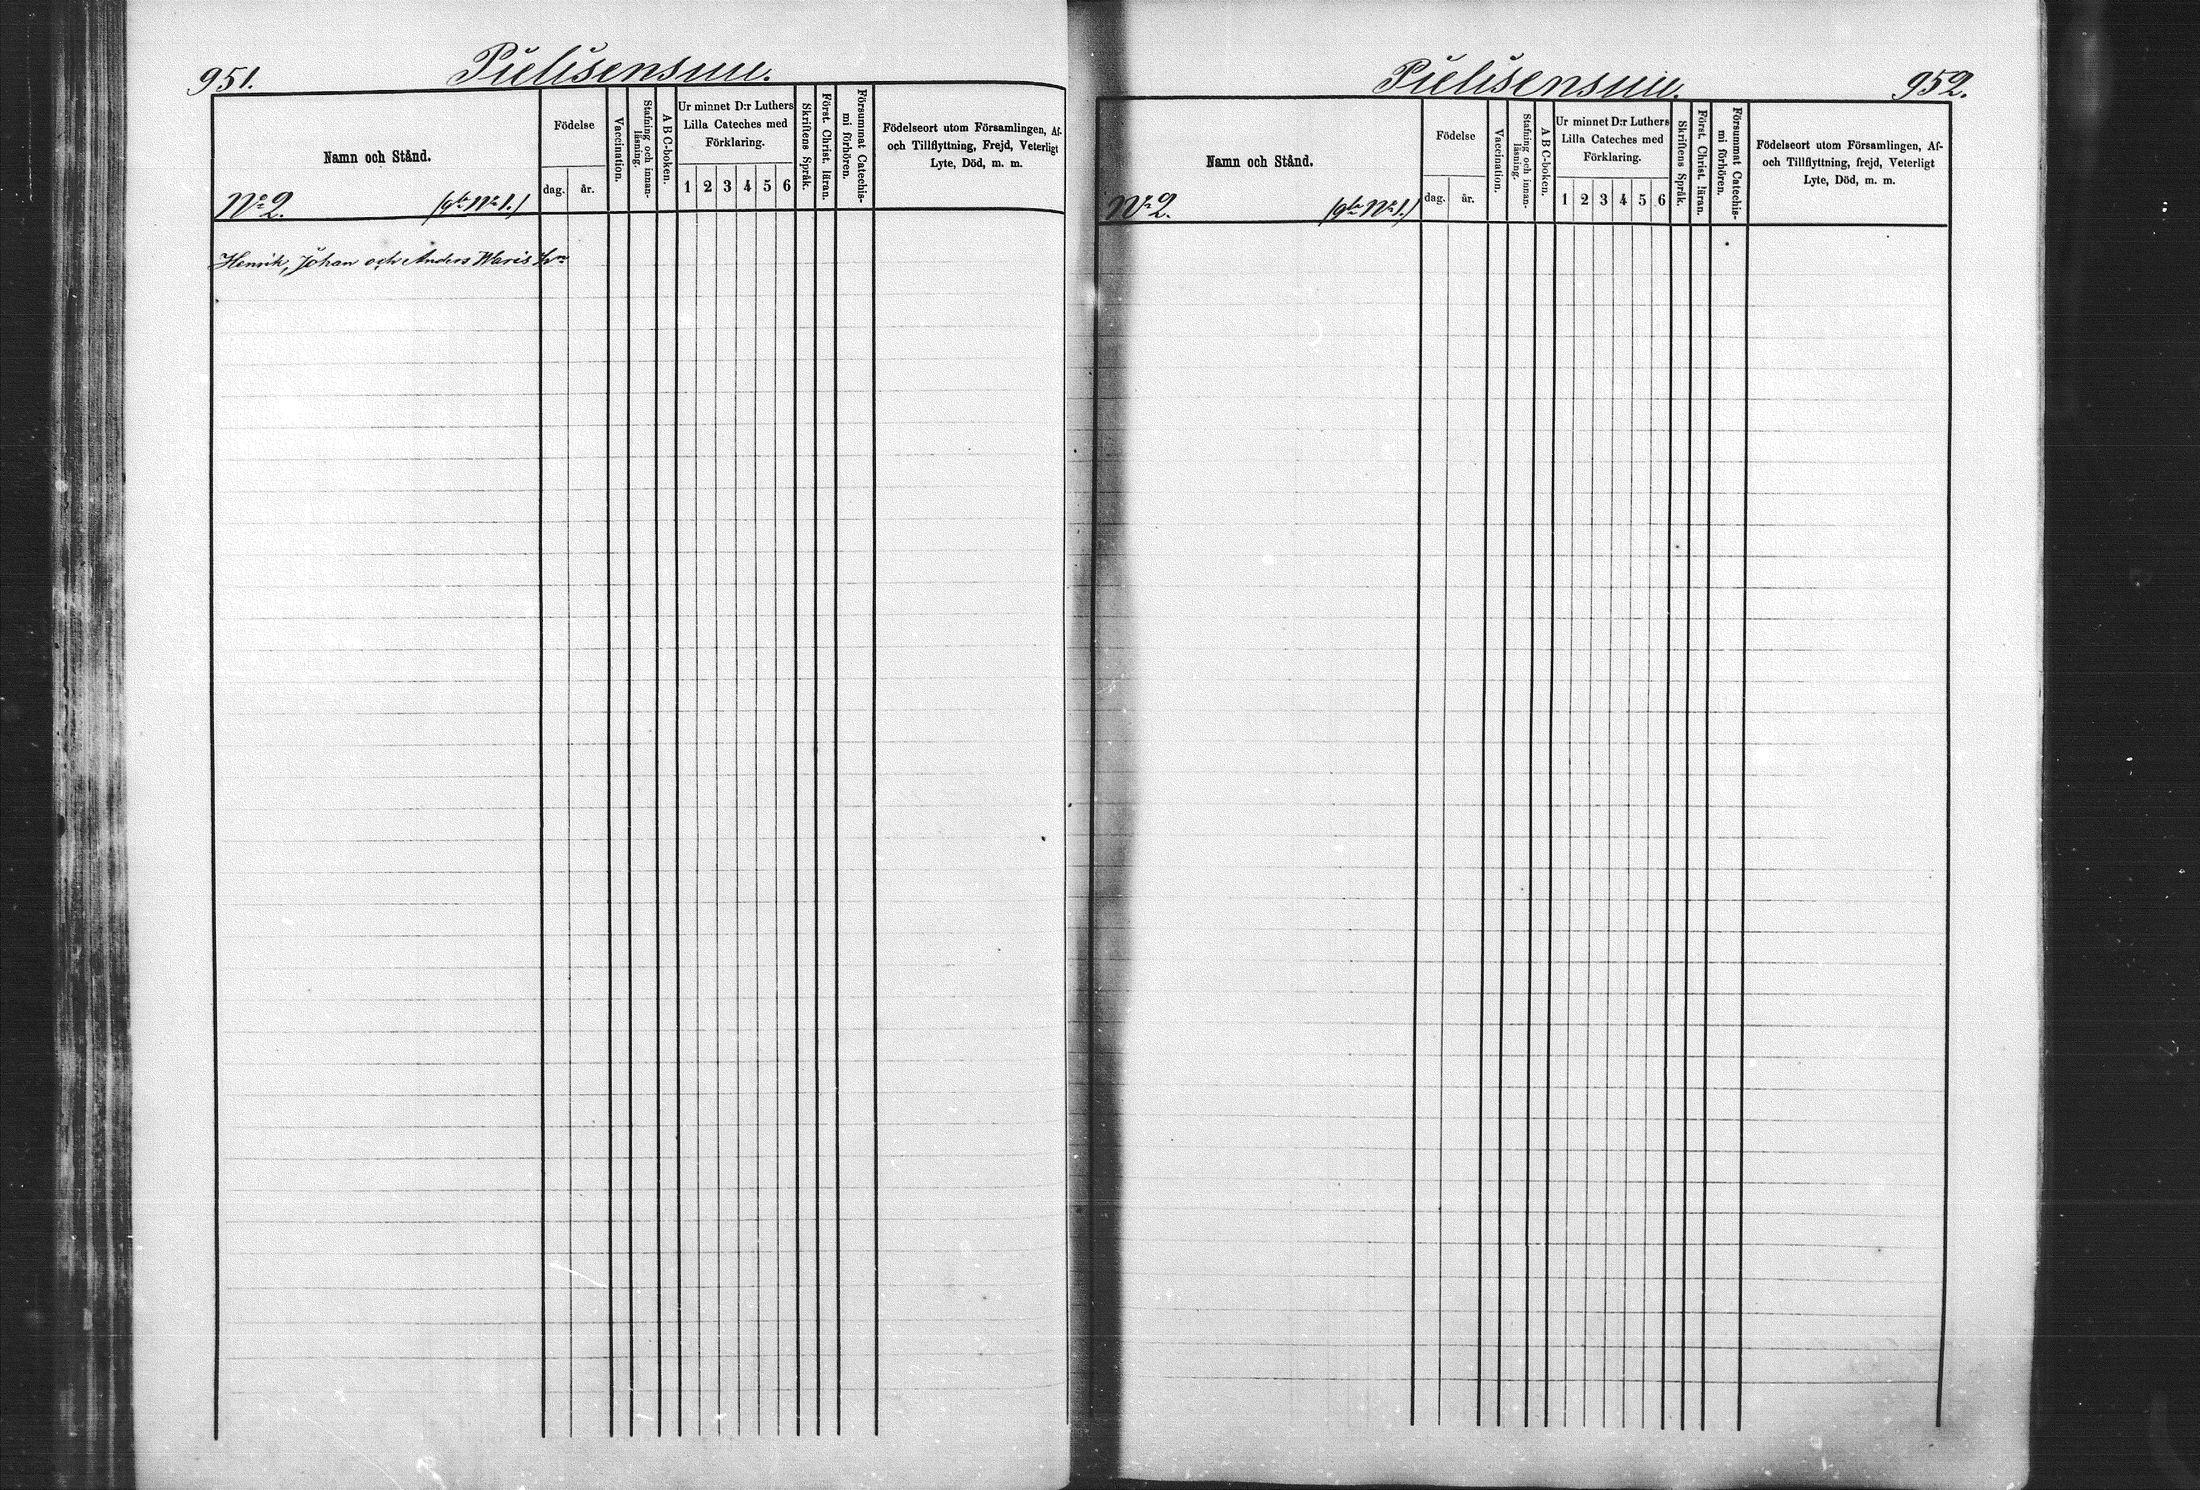 951. Pielisensuu.
Namn och Stånd.
No 2. (gla No 1.)
Födelse
dag. år.
Vaccination.
Stafning och innan-
läsning.
A B C-boken.
Ur minnet D:r Luthers
Lilla Cateches med
Förklaring.
1 2 3 4 5 6
Skriftens Språk.
Först. Christ. läran.
Försummat Catechis-
mi förhören.
Födelseort utom Församlingen, Af-
och Tillflyttning, Frejd, Veterligt
Lyte, Död, m. m.
Henrik, Johan och Anders Waris
Pielisensuu. 952.
Namn och Stånd.
No 2. (gla No 1.)
Födelse
dag. år.
Vaccination.
Stafning och innan-
läsning.
A B C-boken.
Ur minnet D:r Luthers
Lilla Cateches med
Förklaring.
1 2 3 4 5 6
Skriftens Språk.
Först. Christ. läran.
Försummat Catechis-
mi förhören.
Födelseort utom Församlingen, Af-
och Tillflyttning, frejd, Veterligt
Lyte, Död, m. m.